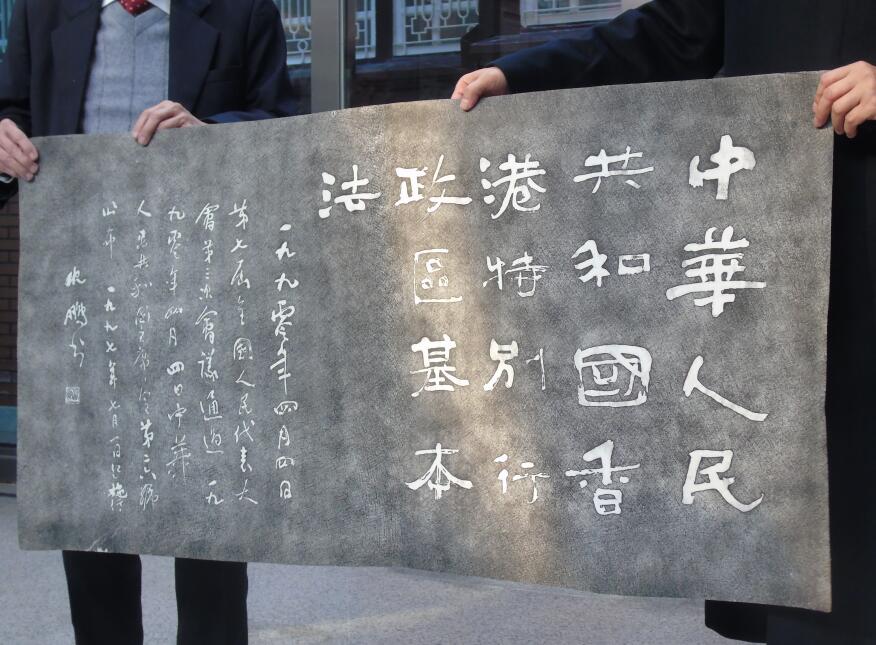 中華人民
共和國香
港特別行
政區基本
法
一九九零年四月四日
第七屆全國人民代表大
會第三次會議通過一九
九零年四月四日中華
人民共和國主席令第二六號
公布 一九九七年七月一日起施行
鵬書